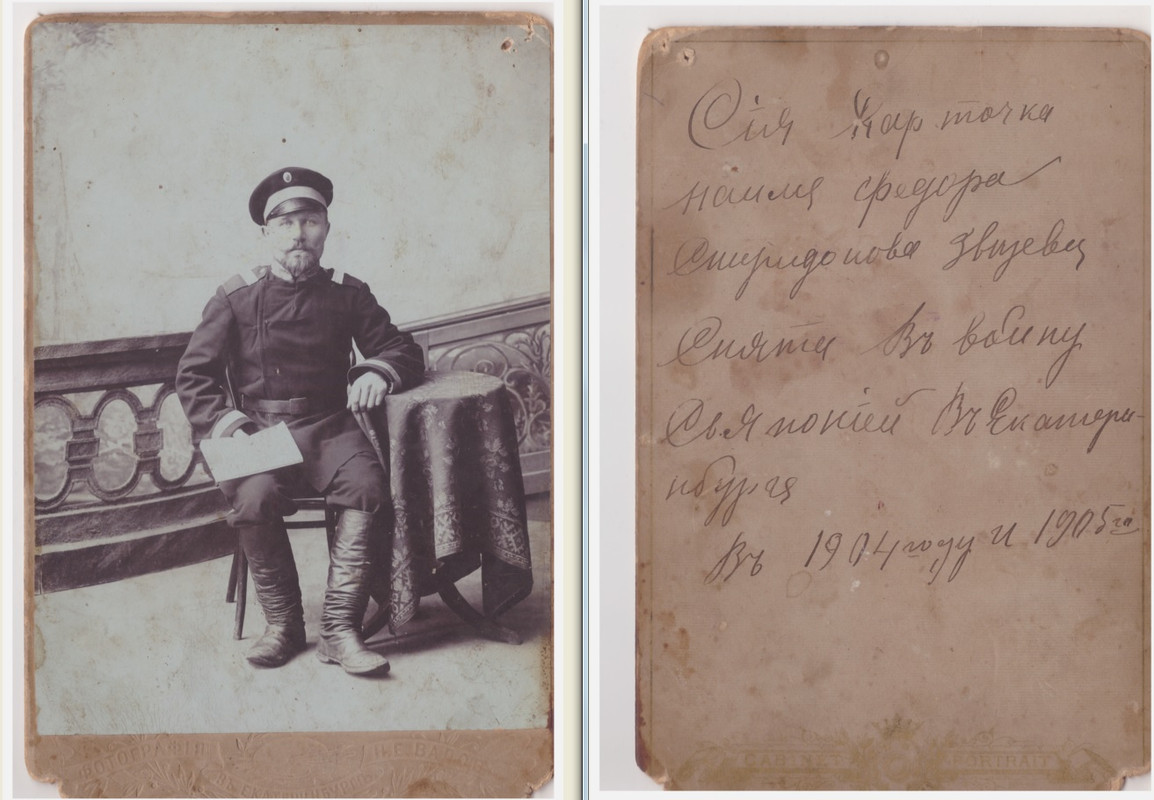 ФОТОГРАФІЯ
ВЪ ЕКАТЕРИНБУРГѢ
Сія карточка
наимя федора
Спиридонова Звызевa
Снята Въ войну
СъЯпоніей ВъЕкатери-
нбурга
Въ 1904 году и 1905 га
CABINET PORTRAIT